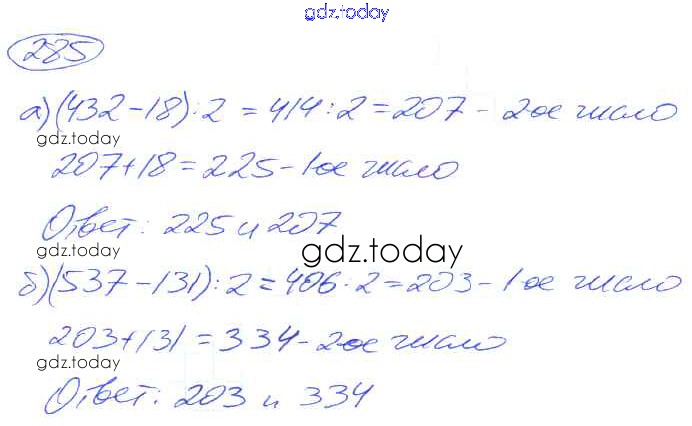 gdz.today
285
а) (432-18):2 = 414:2 = 207 - 2ое число
gdz.today
207+18 = 225 - 1ое число
Ответ: 225 и 207
gdz.today
б) (537-131):2 = 406:2 = 203 - 1ое число
203+131 = 334 - 2ое число
gdz.today
Ответ: 203 и 334